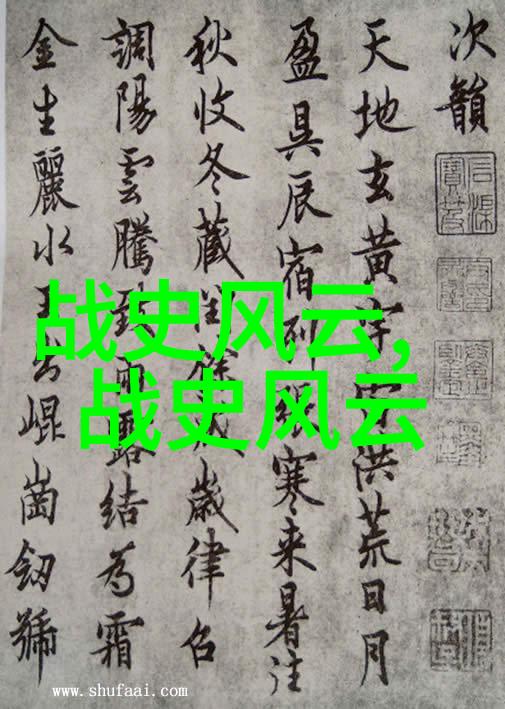 次韻
天地玄黃宇洪荒日月
盈昃辰宿列張寒来暑往
秋收冬藏歲律吕
調陽雲騰致雨露結為霜
金生麗水玉出崐崗劒號
战史风云,
战史风云
www.shufaai.com